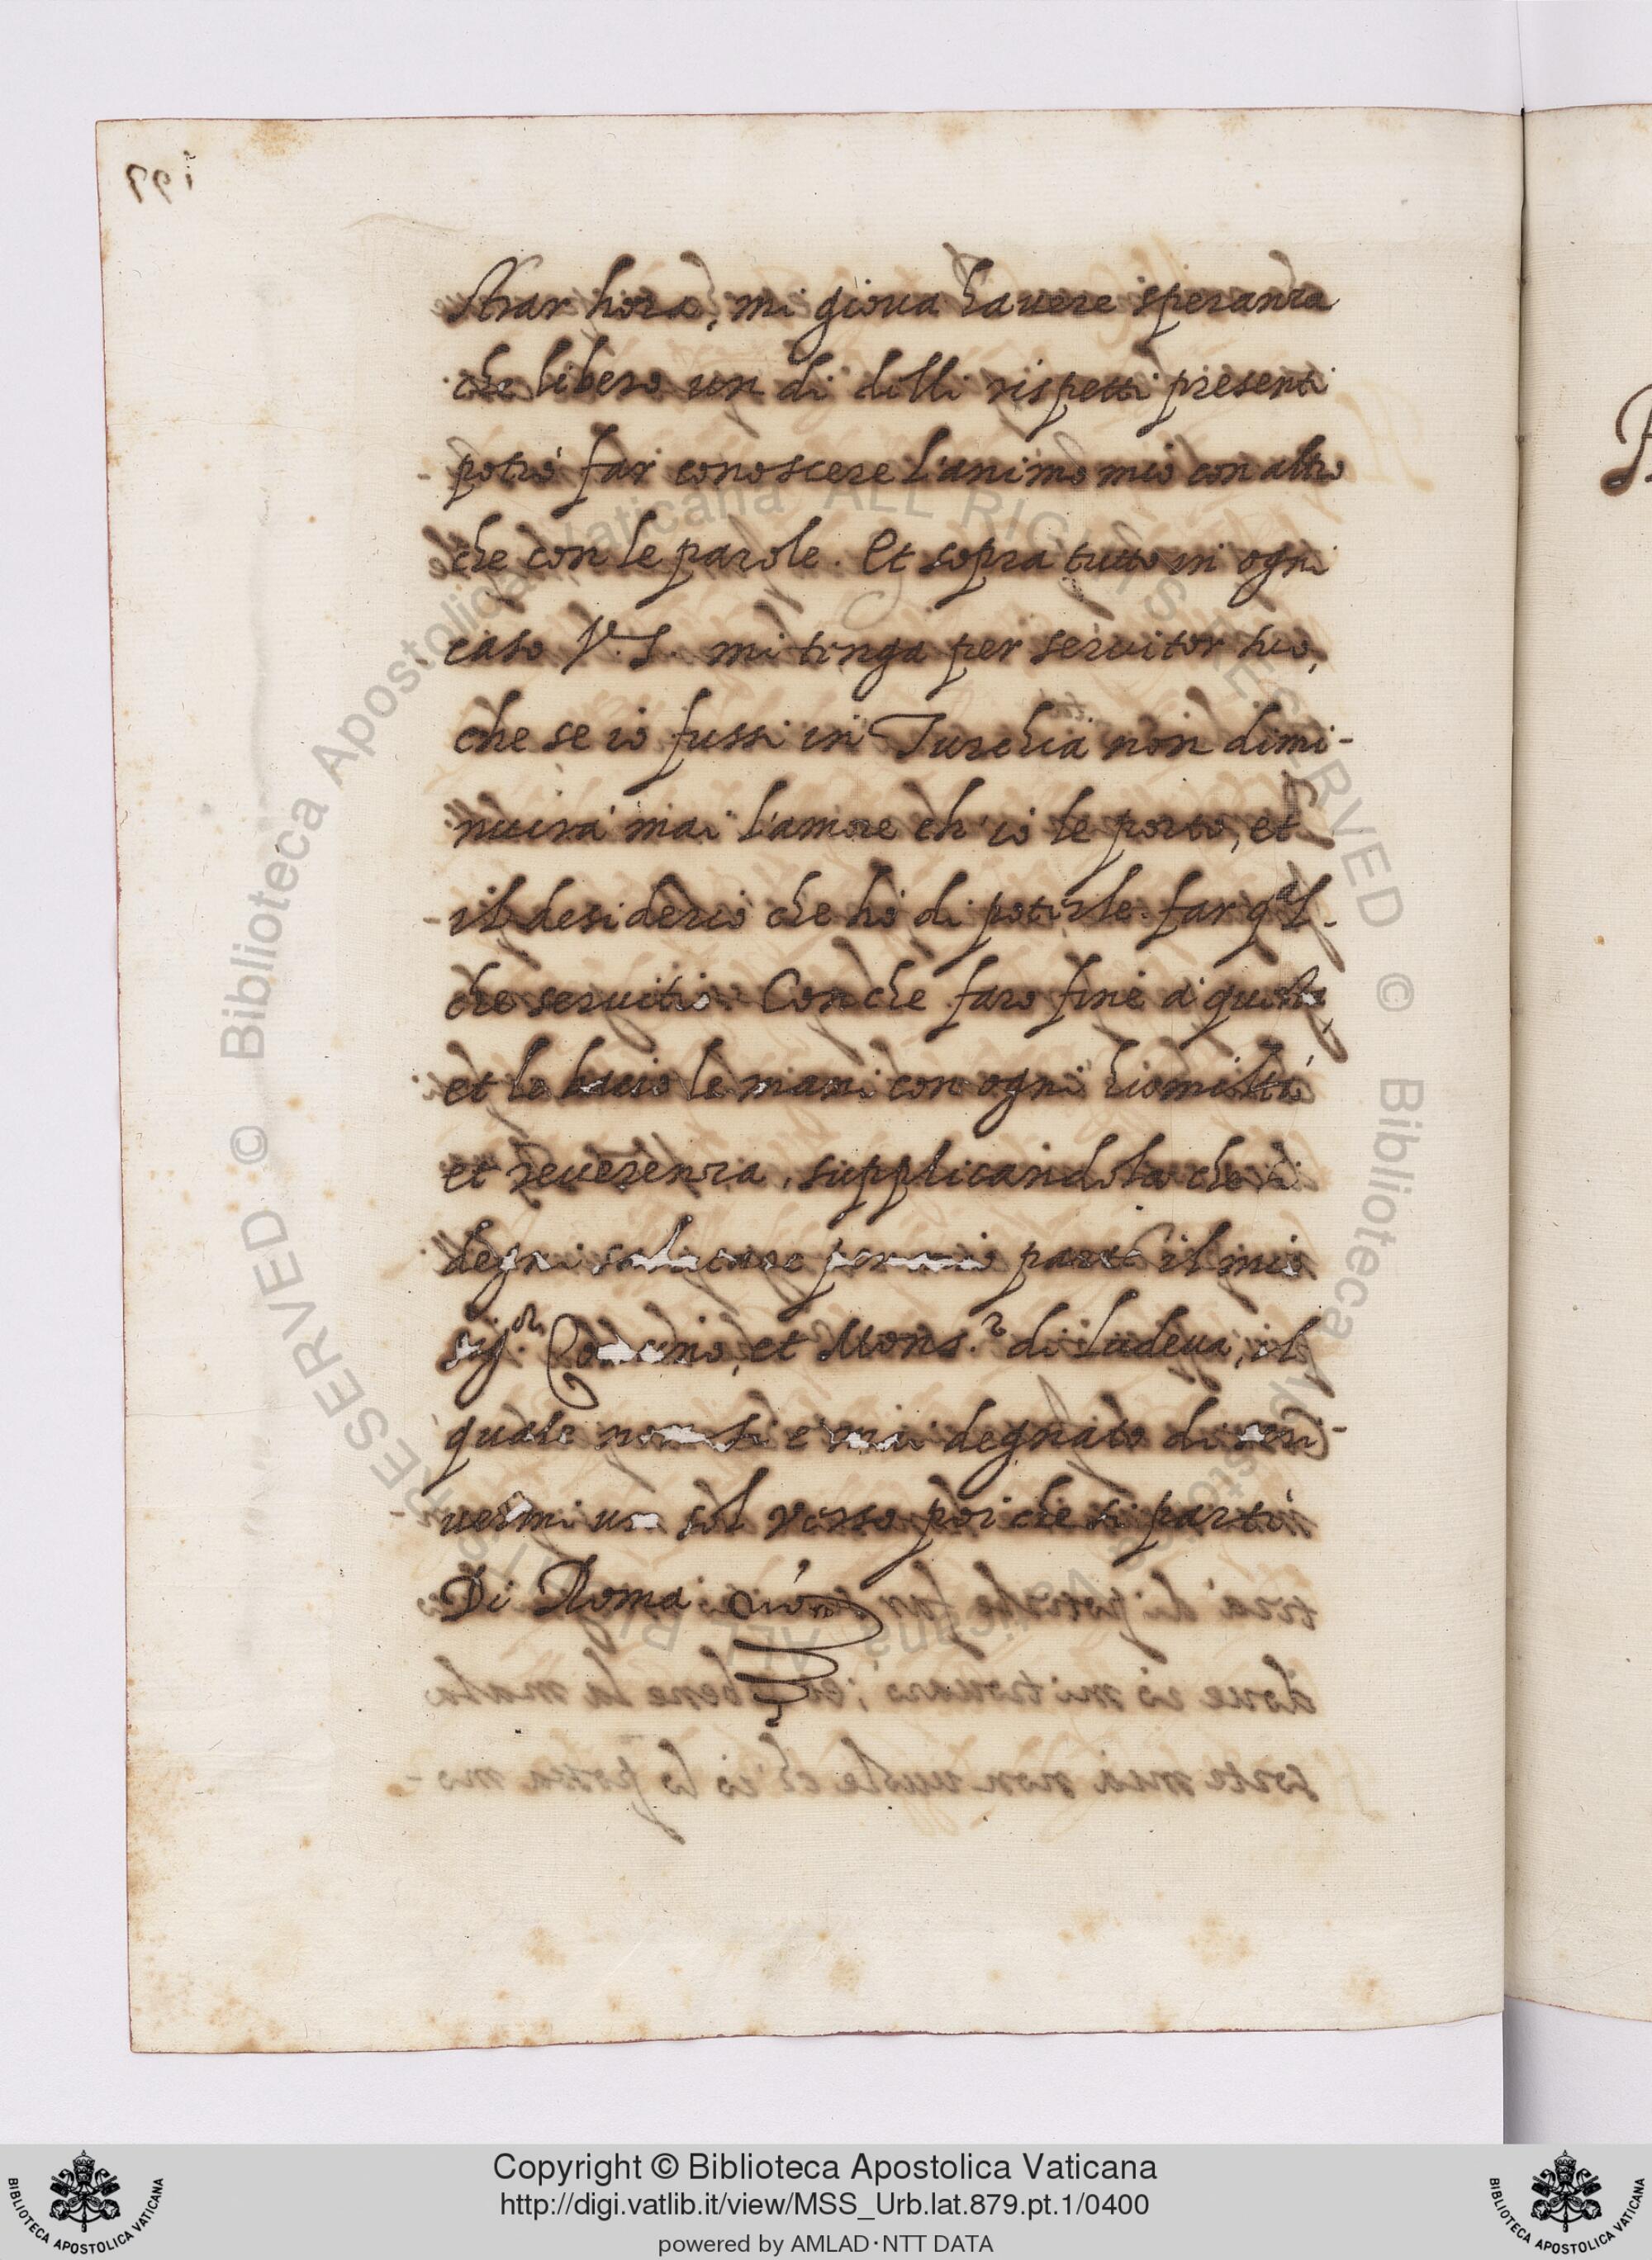 strar hora, mi gioua hauere speranza
che libero un di dalli rispetti presenti
potrò far conoscere l'animo mio con altro
che con le parole. Et sopra tutto in ogni
caso V. S. mi tenga per seruitor suo,
che se io fussi in Turchia non dimi-
nuirà mai l'amore ch'io le porto, et
il desiderio che hò di poterle far qal-
che seruitio. Con che faro fine à questa
et le bacio le mani con ogni humiltà
et reuerenza, supplicandola che si
degni salutare per mio parte il mio
sigor et Monsr di Ladeua, il
quale non si è mai degnato di scri-
uermi un sol verso poi che si partì
Di Roma
197
Copyright © Biblioteca Apostolica Vaticana
http://digi.vatlib.it/view/MSS_Urb.lat.879.pt.1/0400
powered by AMLAD·NTT DATA
BIBLIOTECA APOSTOLICA VATICANA
BIBLIOTECA APOSTOLICA VATICANA
© Biblioteca Apostolica Vaticana ALL RIGHTS RESERVED © Biblioteca Apostolica Vaticana ALL RIGHTS RESERVED